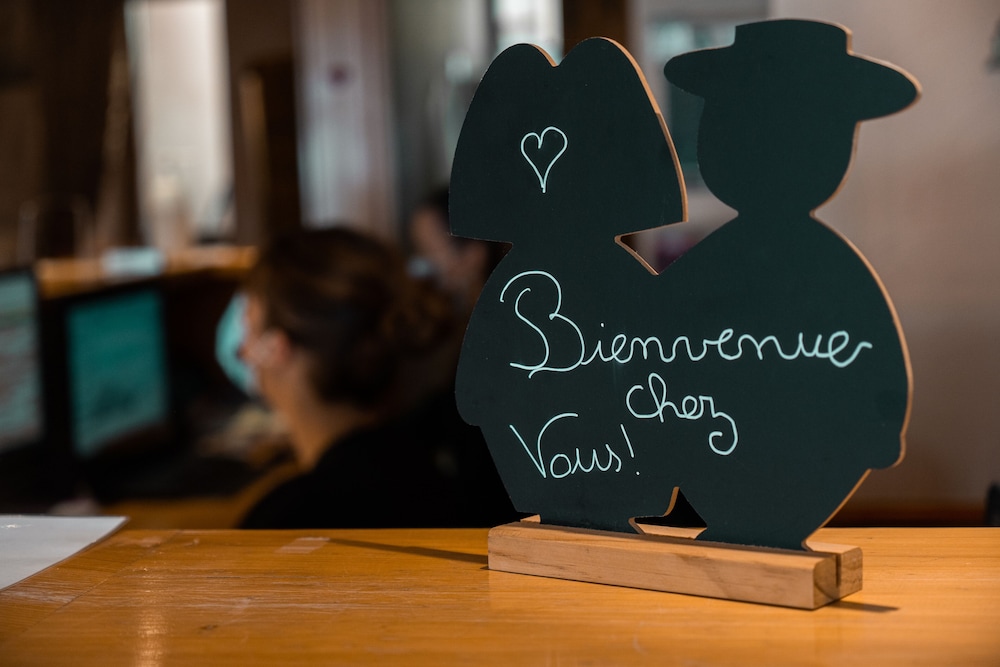 Bienvenue
chez
Vous!